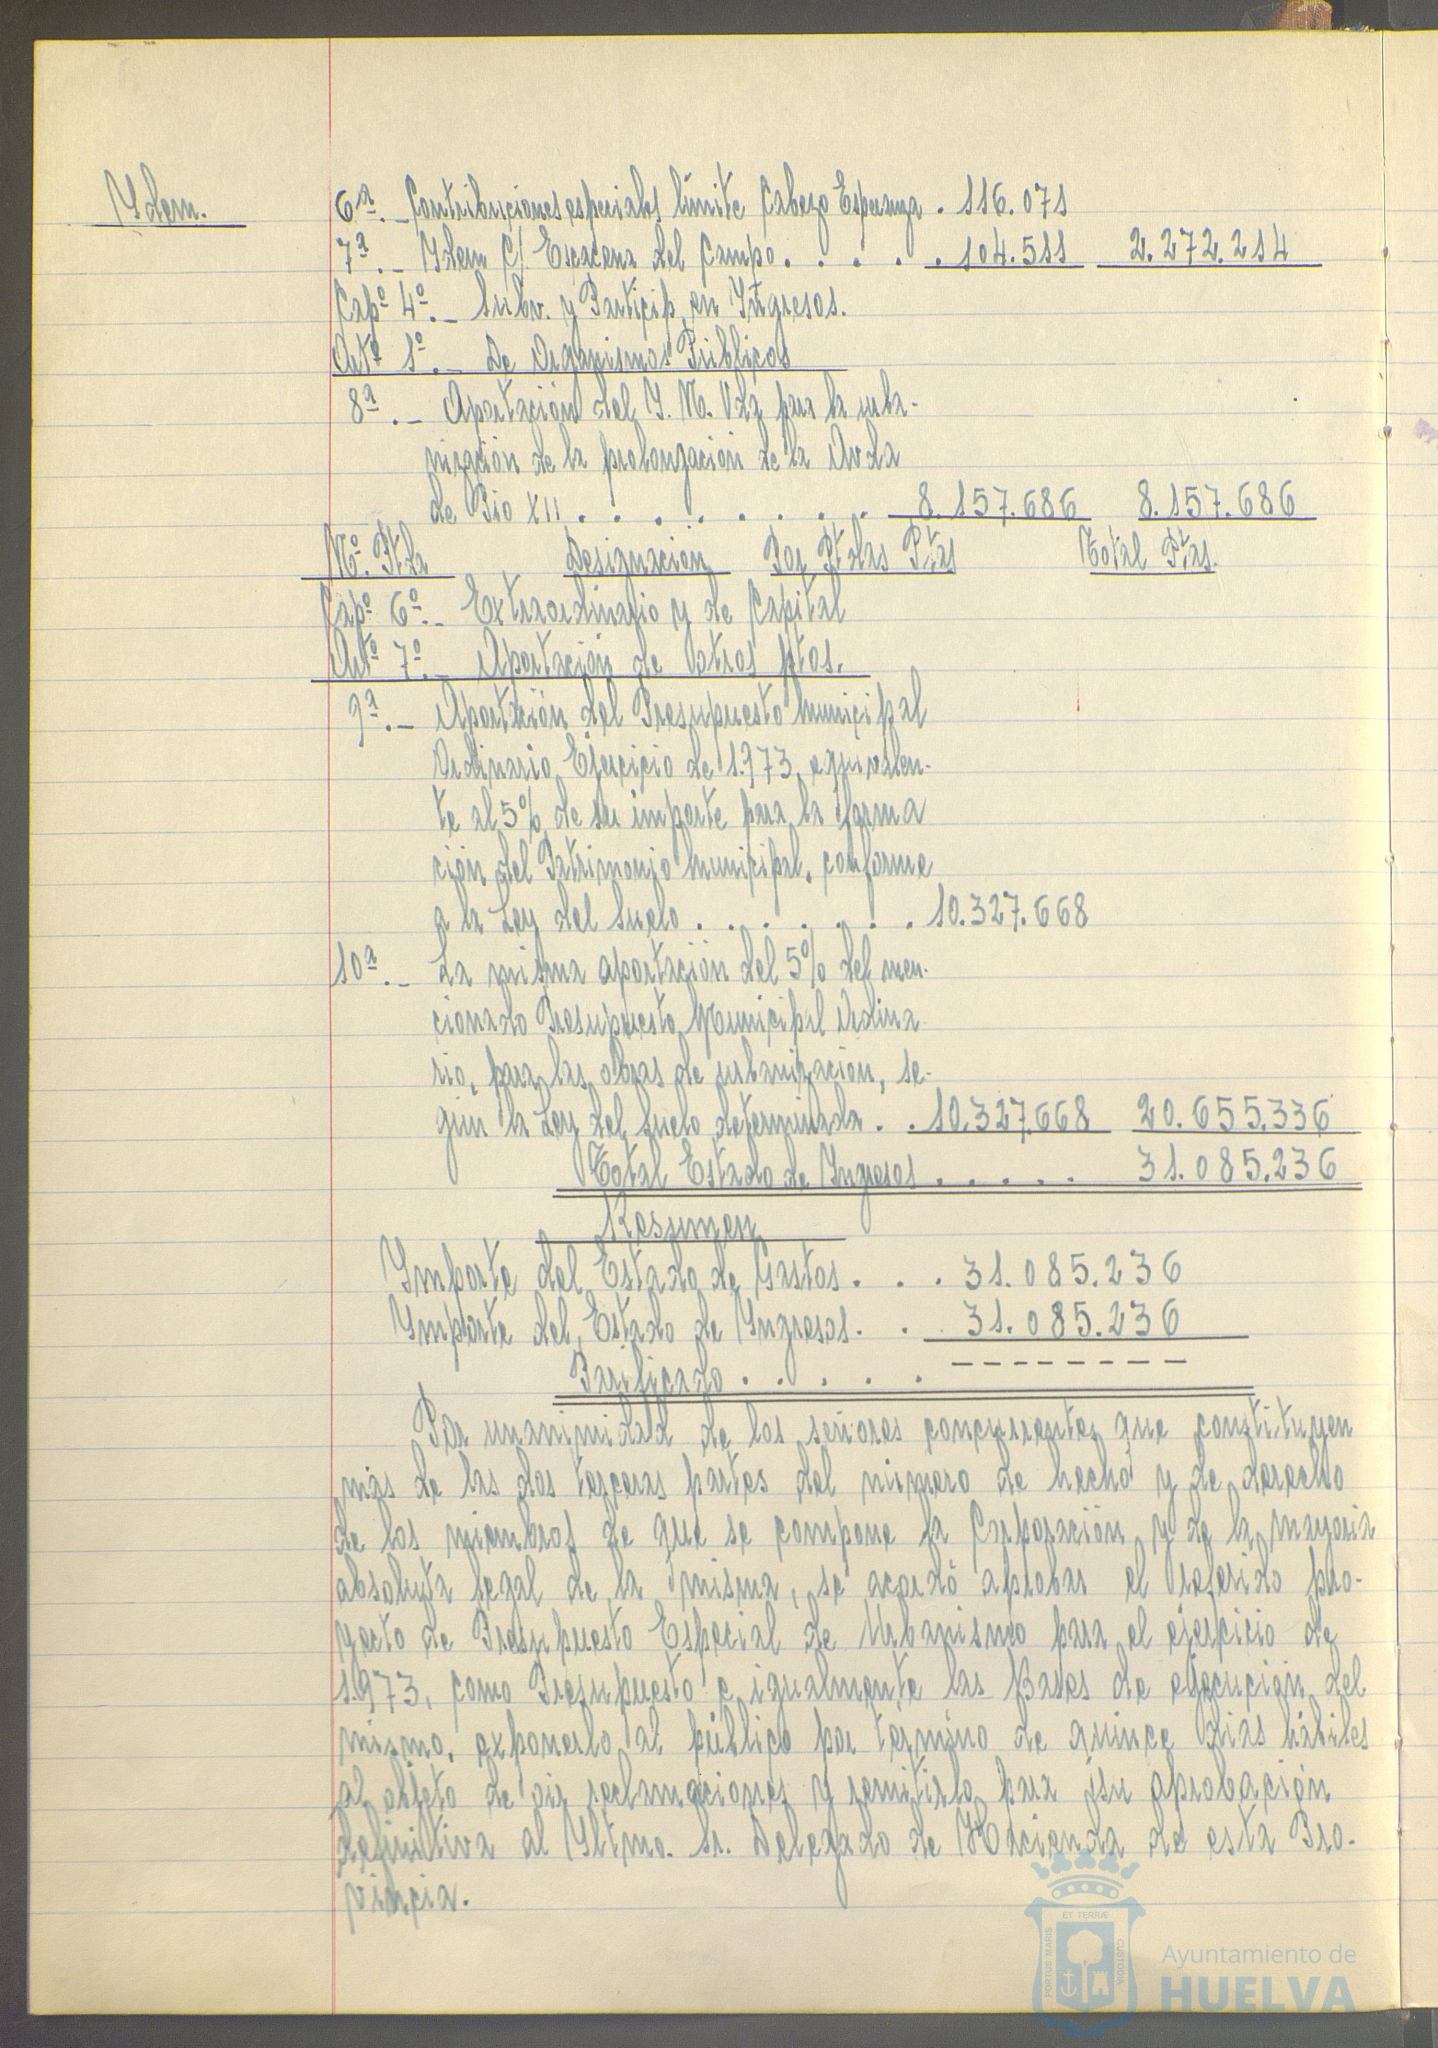 Ydem.
6ª._ Contribuciones especiales límite Cabezo Esperanza . 116.071
7ª._ Ydem C/ Escacena del Campo. . . . . . 104.511 2.272.214
Capº 4º._ Subv. y Particip. en Ingresos.
Artº 1º._ De Organismos Públicos
8ª._ Aportación del Y. N. Vda para la urba-
nización de la prolongación de la Avda
de Pio XII . . . . . . . . 8.157.686 8.157.686
Nº. Ptda Designación Por Ptdas Ptas Total Ptas.
Capº 6º._ Extraordinario y de Capital
Artº 7º._ Aportación de otros ptos.
9ª._ Aportación del Presupuesto Municipal
Ordinario, Ejercicio de 1.973, equivalen-
te al 5% de su importe para la forma
ción del Patrimonio Municipal, conforme
a la Ley del Suelo . . . . . . . 10.327.668
10ª._ La misma aportación del 5% del men-
cionado Presupuesto Municipal Ordina-
rio, para las obras de urbanización, se-
gún la Ley del Suelo determinada. . 10.327.668 20.655.336
Total Estado de Ingresos . . . . . 31.085.236
Resumen
Ymporte del Estado de Gastos. . . 31.085.236
Ymporte del Estado de Yngresos. . . 31.085.236
Parificado . . . . . ---------
Por unanimidad de los señores concurrentes que constituyen
más de las dos terceras partes del número de hecho y de derecho
de los miembros de que se compone la Corporación y de la mayoria
absoluta legal de la misma, se acordó aprobar el referido pro-
yecto de Presupuesto Especial de Urbanismo para el ejercicio de
1.973, como Presupuesto e igualmente las Bases de ejecución del
mismo, exponerlo al público por término de quince dias hábiles
al objeto de oir reclamaciones y remitirlo para su aprobación
definitiva al Yltmo. Sr. Delegado de Hacienda de esta Pro-
vincia.
ET TERRÆ
PORTUS MARIS
CUSTODIA
Ayuntamiento de
HUELVA